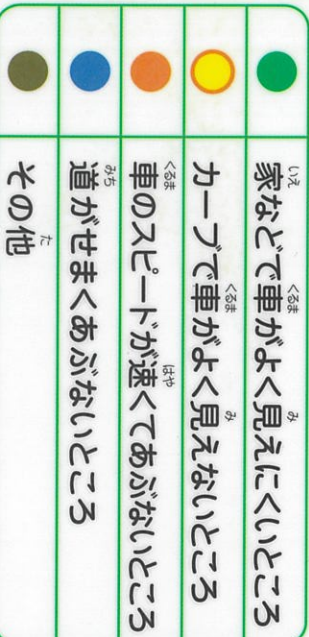 家などで車がよく見えにくいところ
カーブで車がよく見えないところ
車のスピードが速くてあぶないところ
道がせまくあぶないところ
その他